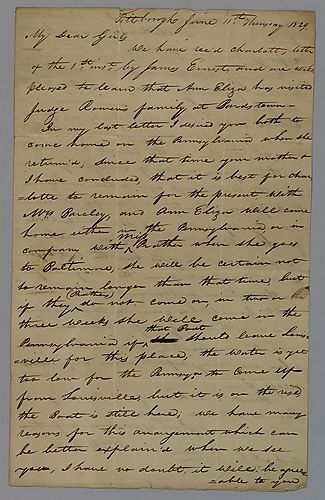 Pittsburgh June 11th Thursday 1829.
My Dear Girls
We have rec'd Charlotte's letter
of the 1st inst by James Ernest, and are well
pleased to learn that Ann Eliza has visited
Judge Rowan's family at Bardstown—
In my last letter I desired you both to
come home on the Pennsylvania when she
return'd, since that time your mother &
I have concluded, that it is best for Char
=lotte to remain for the present with
Mrs Barcley, and Ann Eliza will come
home either in the Pennsylvania or in
company with Mrs Prather when she goes
to Baltimore, she will be certain not
to remain longer than that time, but
if they (Prathers) do not come on, in two or
three weeks she will come in the
Pennsylvania if that Boat should leave Louis
=ville for this place, the water is yet
too low for the Pennsya to come up
from Louisville, but it is on the rise,
the Boat is still here, we have many
reasons for this arrangement which can
be better explain'd when we see
you, I have no doubt, it will be agree
=able to you